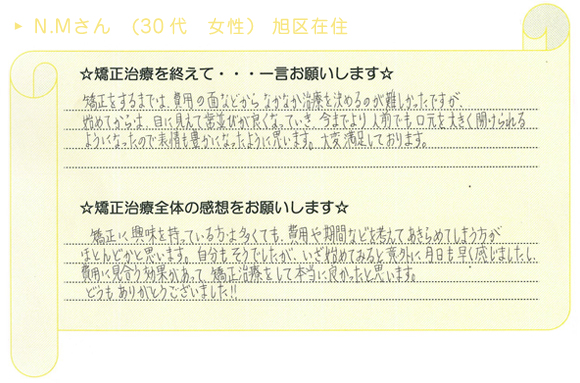 ▸ N.Mさん （30代 女性） 旭区在住
☆矯正治療を終えて・・・一言お願いします☆
矯正をするまでは、費用の面などからなかなか治療を決めるのが難しかったですが、
始めてからは、目に見えて歯並びが良くなっていき、今までより人前でも口元を大きく開けられる
ようになったので表情も豊かになったように思います。大変満足しております。
☆矯正治療全体の感想をお願いします☆
矯正に興味を持っている方は多くても、費用や期間などを考えてあきらめてしまう方が
ほとんどかと思います。自分もそうでしたが、いざ始めてみると意外に月日も早く感じましたし、
費用に見合う効果があって、矯正治療をして本当に良かったと思います。
どうもありがとうございました!!